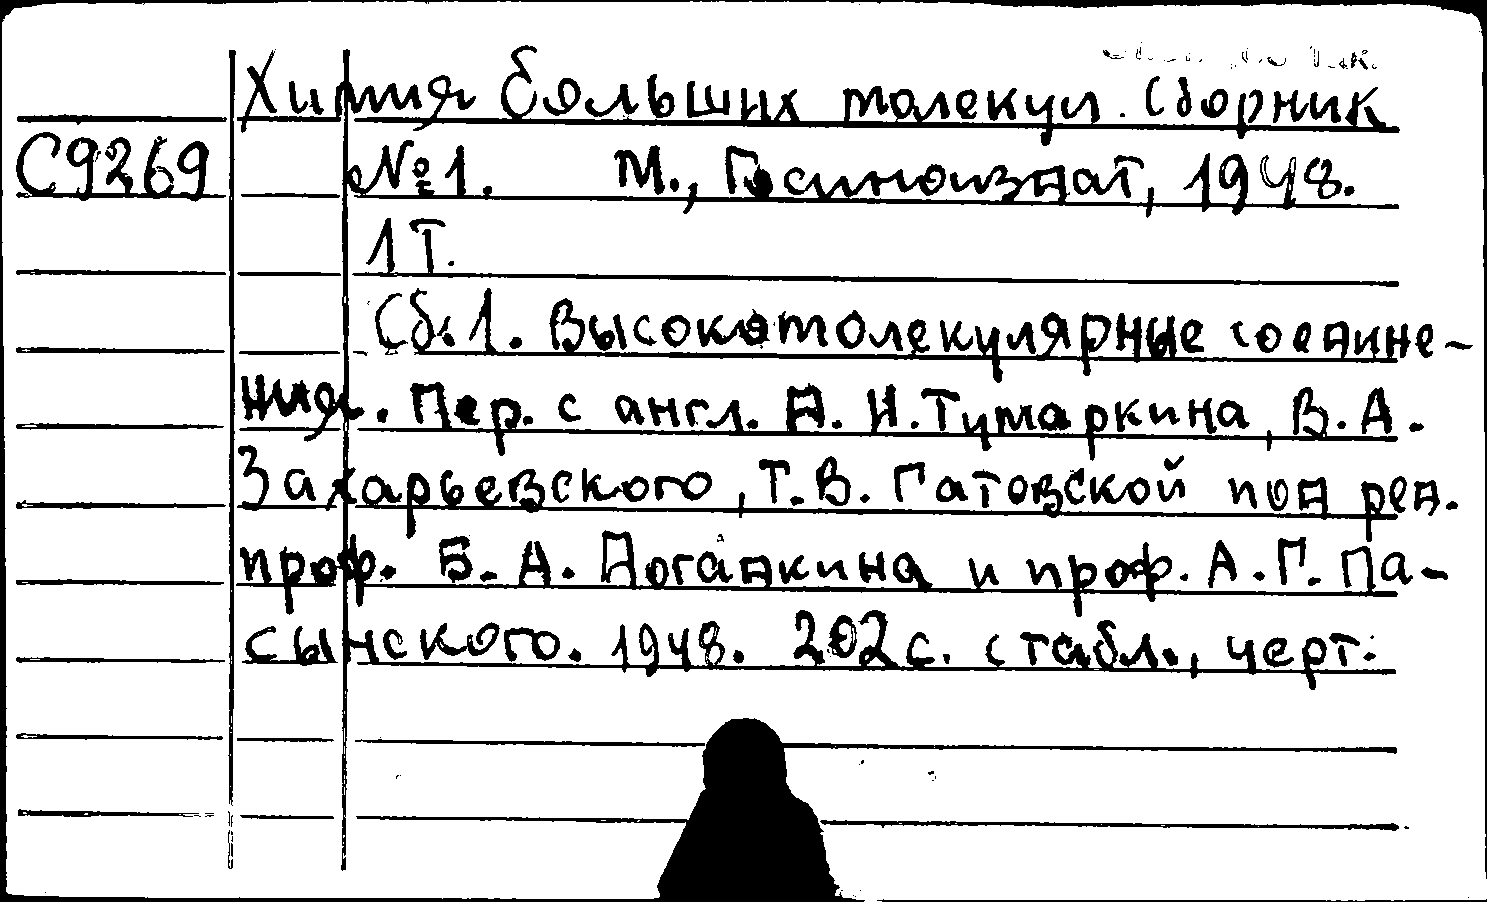 Химия больших молекул. Сборник
С9269
№1. М., Госиноиздат, 1948.
1 т.
Сб. 1. Высокомолекулярные соедине-
ния. Пер. с англ. А. И. Тумаркина, В. А.
Захарьевского, Т. В. Гатовской под ред.
проф. Б. А. Догадкина и проф. А. Г. Па-
сынского. 1948. 202 с. с табл., черт.